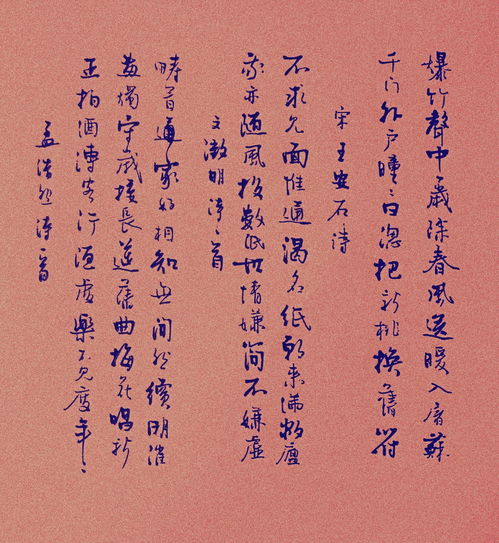 爆竹聲中一歲除春風送暖入屠蘇
千门外戶曈々日總把新桃換舊符
宋王安石詩
不求見面惟通謁名紙朝來滿敝廬
我亦隨風投數紙世情嫌簡不嫌虛
文徵明詩一首
疇昔通家好相知無間然續明催
畫燭守歲接長筵舊曲梅花唱新
正柏酒傳客行隨處樂不見度年々
孟浩然詩一首